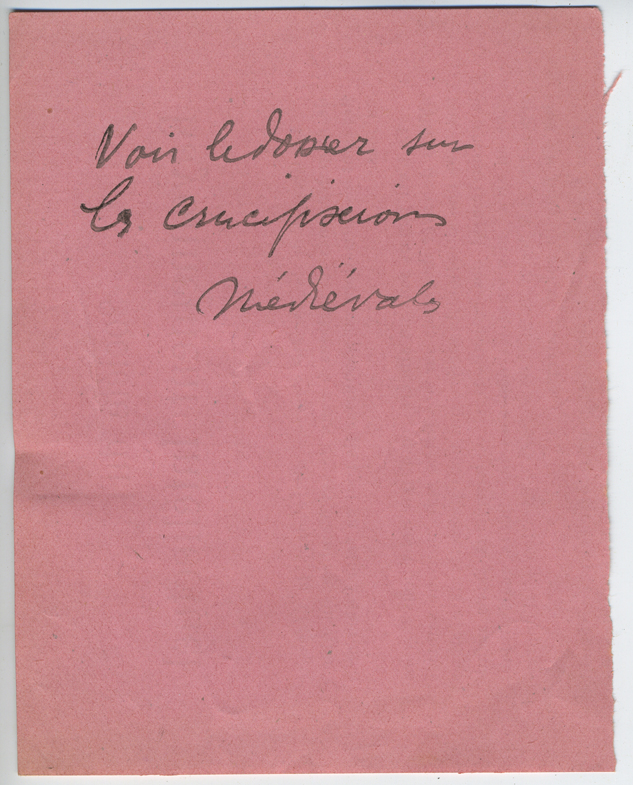 Voir le dossier sur
les crucifixions
Médiévales